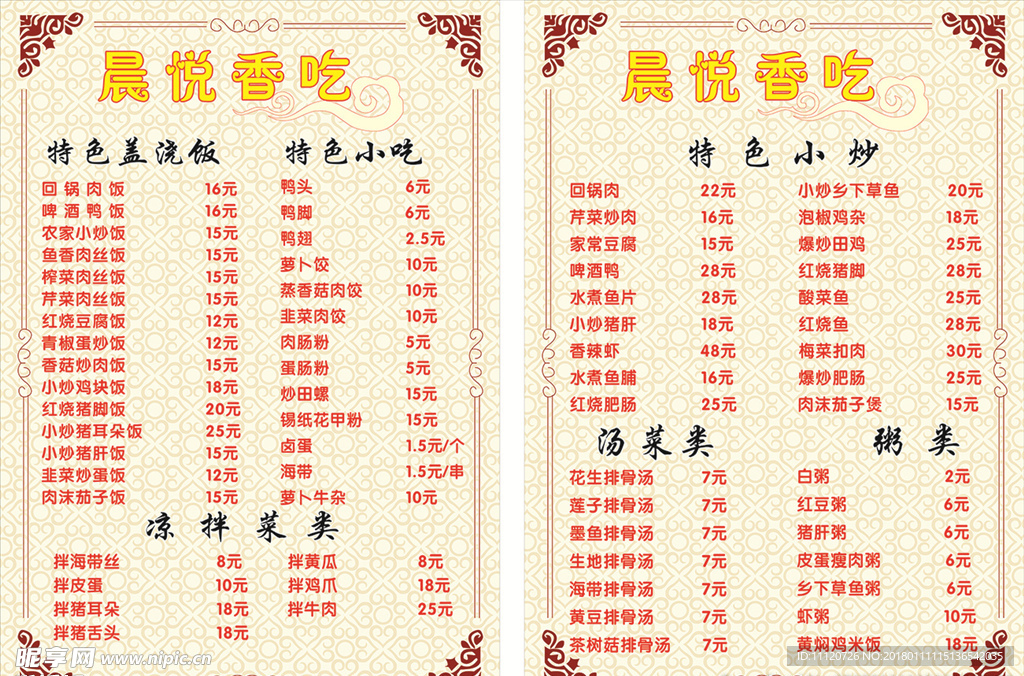 晨悦香吃
特色盖浇饭
回锅肉饭 16元
啤酒鸭饭 16元
农家小炒饭 15元
鱼香肉丝饭 15元
榨菜肉丝饭 15元
芹菜肉丝饭 15元
红烧豆腐饭 12元
青椒蛋炒饭 12元
香菇炒肉饭 15元
小炒鸡块饭 18元
红烧猪脚饭 20元
小炒猪耳朵饭 25元
小炒猪肝饭 15元
韭菜炒蛋饭 12元
肉沫茄子饭 15元
特色小吃
鸭头 6元
鸭脚 6元
鸭翅 2.5元
萝卜饺 10元
蒸香菇肉饺 10元
韭菜肉饺 10元
肉肠粉 5元
蛋肠粉 5元
炒田螺 15元
锡纸花甲粉 15元
卤蛋 1.5元/个
海带 1.5元/串
萝卜牛杂 10元
凉拌菜类
拌海带丝 8元
拌皮蛋 10元
拌猪耳朵 18元
拌猪舌头 18元
拌黄瓜 8元
拌鸡爪 18元
拌牛肉 25元
晨悦香吃
特色小炒
回锅肉 22元
芹菜炒肉 16元
家常豆腐 15元
啤酒鸭 28元
水煮鱼片 28元
小炒猪肝 18元
香辣虾 48元
水煮鱼脯 16元
红烧肥肠 25元
小炒乡下草鱼 20元
泡椒鸡杂 18元
爆炒田鸡 25元
红烧猪脚 28元
酸菜鱼 25元
红烧鱼 28元
梅菜扣肉 30元
爆炒肥肠 25元
肉沫茄子煲 15元
汤菜类
花生排骨汤 7元
莲子排骨汤 7元
墨鱼排骨汤 7元
生地排骨汤 7元
海带排骨汤 7元
黄豆排骨汤 7元
茶树菇排骨汤 7元
粥类
白粥 2元
红豆粥 6元
猪肝粥 6元
皮蛋瘦肉粥 6元
乡下草鱼粥 6元
虾粥 10元
黄焖鸡米饭 18元
昵享网 www.nipic.cn
ID:11120726 NO:20180111115136542035